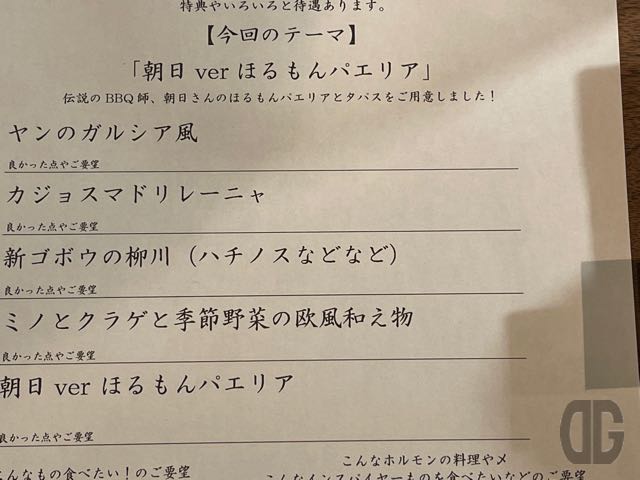 特典やいろいろと待遇あります。
【今回のテーマ】
「朝日 ver ほるもんパエリア」
伝説の BBQ 師、朝日さんのほるもんパエリアとタパスをご用意しました！
ヤンのガルシア風
良かった点やご要望
カジョスマドリレーニャ
良かった点やご要望
新ゴボウの柳川（ハチノスなどなど）
良かった点やご要望
ミノとクラゲと季節野菜の欧風和え物
良かった点やご要望
朝日 ver ほるもんパエリア
良かった点やご要望
こんなホルモンの料理やメ
こんなもの食べたい！のご要望
こんなインスパイヤーものを食べたいなどのご要望
DG